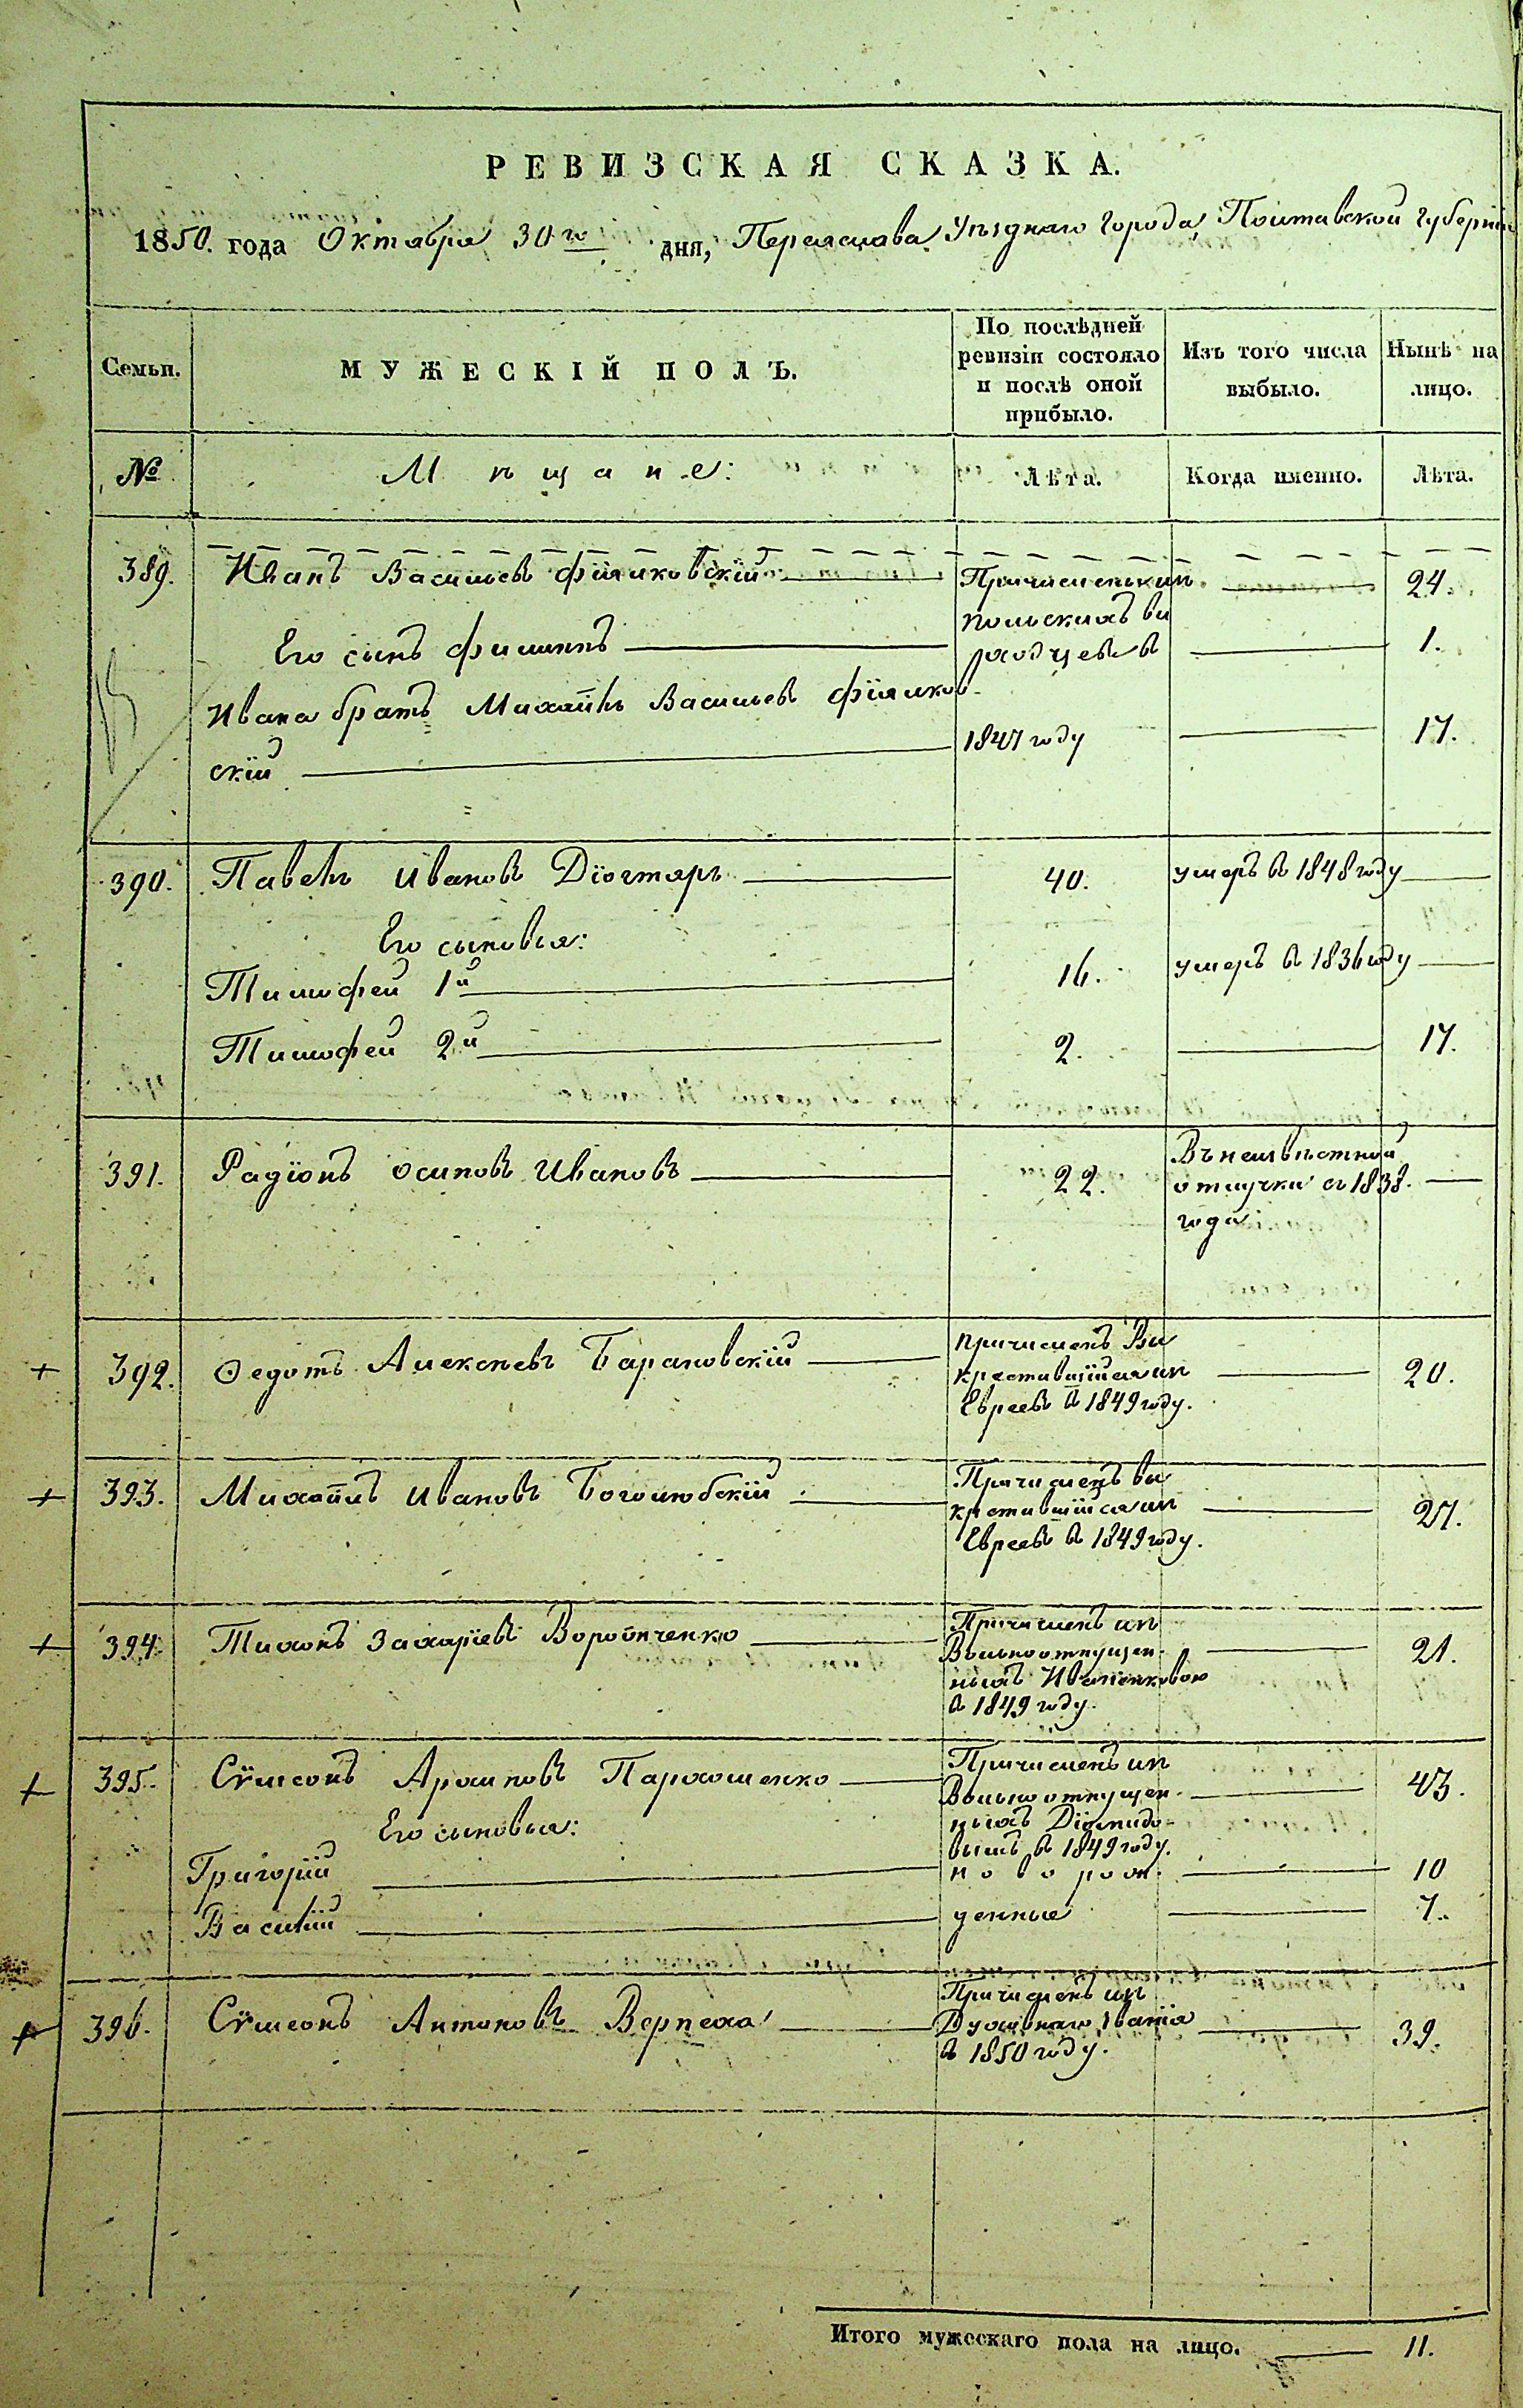 РЕВИЗСКАЯ СКАЗКА.
1850. года Октября 30го дня, Переяслава Уѣзднаго Города, Полтавской Губерніи
Семьи.
МУЖЕСКІЙ ПОЛЪ.
По послѣдней
ревизіи состояло
и послѣ оной
прибыло.
Изъ того числа
выбыло.
Нынѣ на
лицо.
№
Мѣщане:
Лѣта.
Когда именно.
Лѣта.
389. Иванъ Васильевъ Филиковскій
Причисленъ изъ
польскихъ вы
ходцевъ в
1847 году
24.
Его сынъ Филипъ
1.
Ивана братъ Михайлъ Васильевъ Филиков-
скій
17.
390. Павелъ Ивановъ Діогтяръ 40. умеръ въ 1848 году
Его сыновья:
Тимофей 1й 16. умеръ въ 1836 году
Тимофей 2й 2. 17.
391. Радіонъ Осиповъ Ивановъ 22.
Въ неизвѣстной
отлучки съ 1838.
года
392. Ѳедотъ Алексѣевъ Барановскій
причисленъ Вы
крестившійся изъ
Евреевъ въ 1849 году.
20.
393. Михайлъ Ивановъ Боголюбскій
Причисленъ вы
крстившійся изъ
Евреевъ въ 1849 году.
27.
394. Тихонъ Захаріевъ Воробіченко
Причисленъ изъ
Вольноотпущен-
ныхъ Иваненковою
въ 1849 году.
21.
395. Сѵмеонъ Архиповъ Пархоменко
Причисленъ изъ
Вольноотпущен-
ныхъ
въ 1849 году.
43.
Его сыновья:
Григорій новорож- 10
Василій денные 7.
396. Сѵмеонъ Антоновъ Верпеха
Причисленъ изъ
Духовнаго званія
въ 1850 году.
39.
Итого мужескаго пола на лицо. 11.